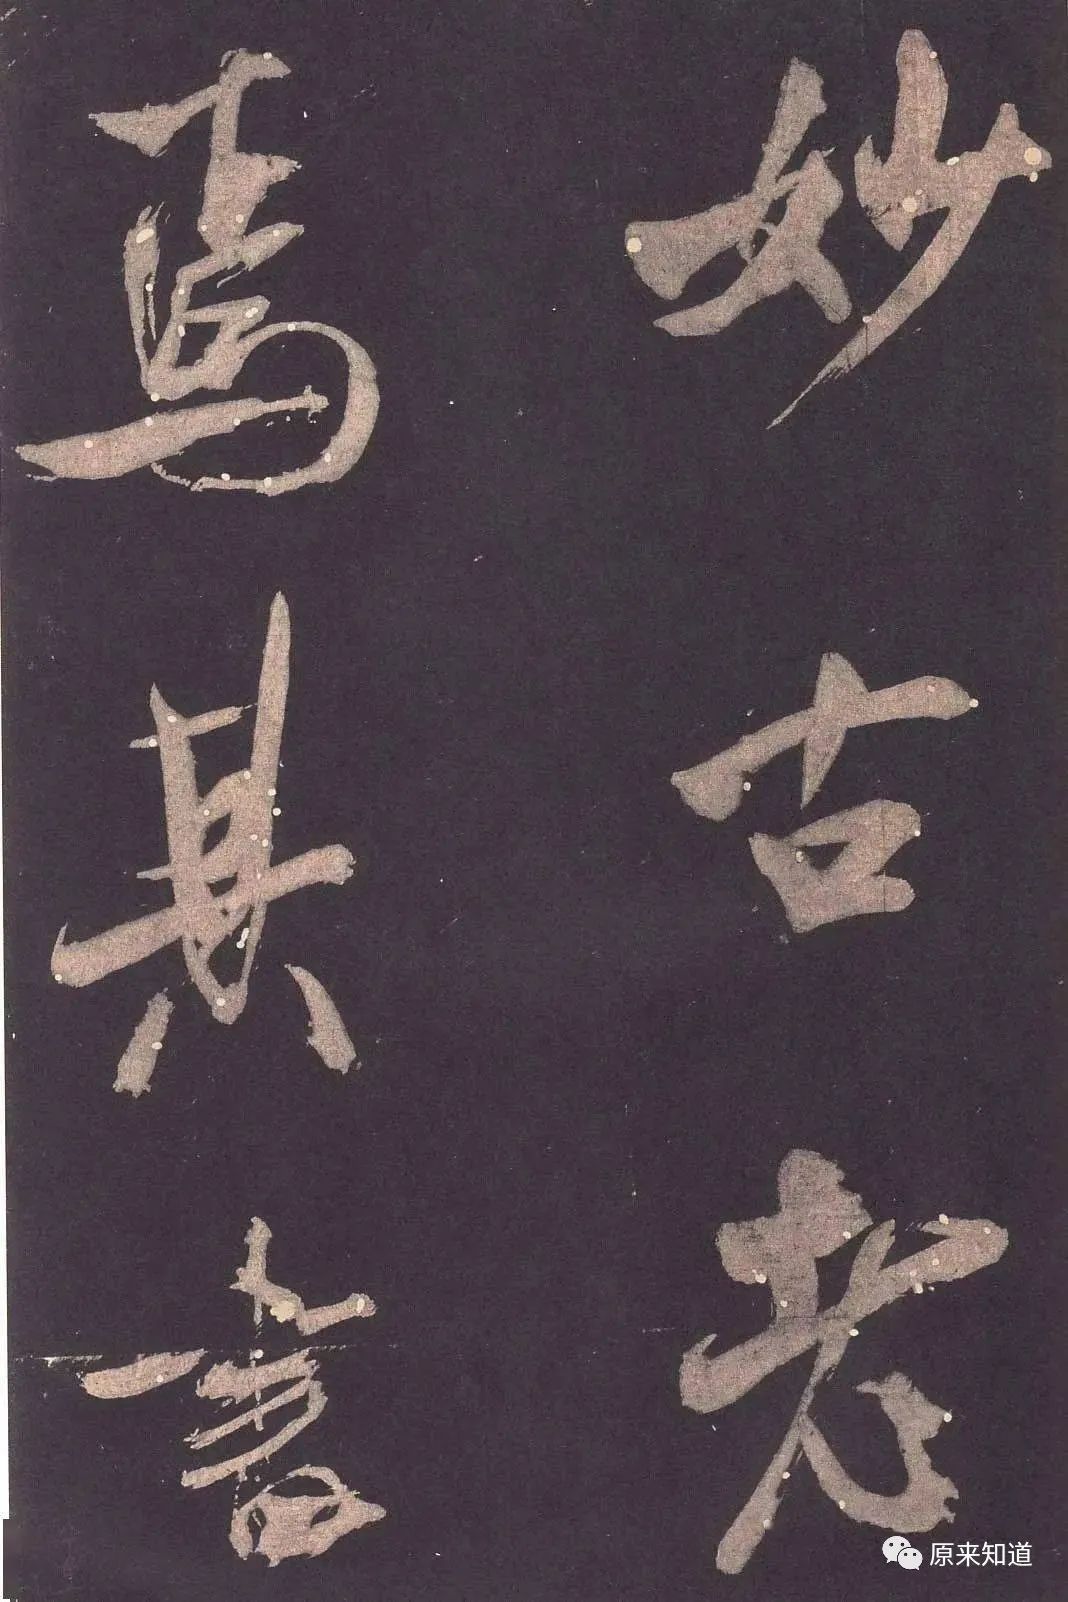 妙古老
焉其言
原来知道